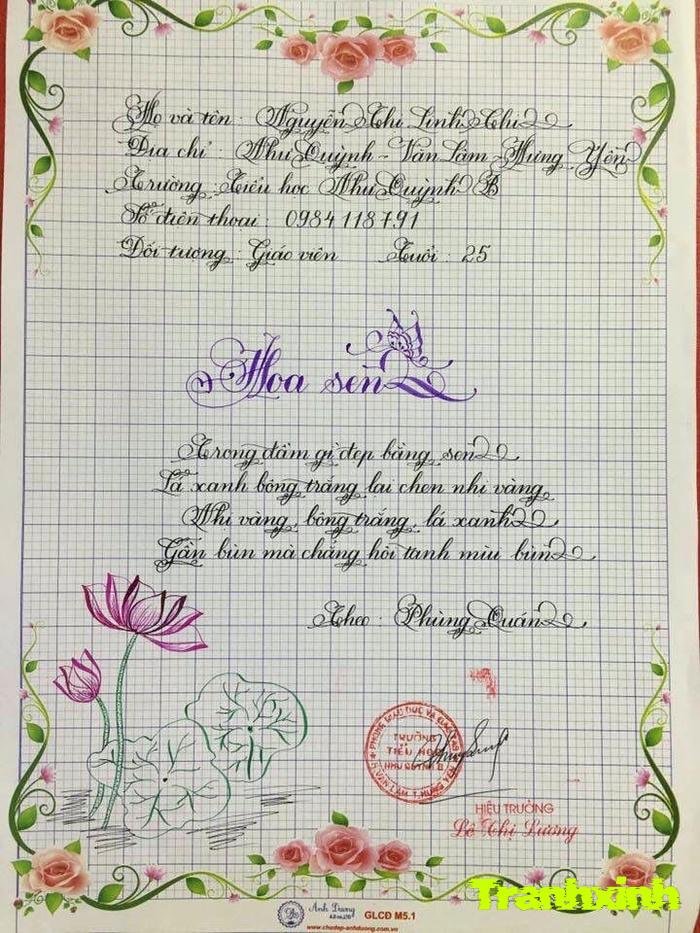 Họ và tên : Nguyễn Thị Linh Chi
Địa chỉ : Như Quỳnh - Văn Lâm - Hưng Yên
Trường : Tiểu học Như Quỳnh B
Số điện thoại : 0984118791
Đối tượng : Giáo viên Tuổi : 25
Hoa sen
Trong đầm gì đẹp bằng sen
Lá xanh bông trắng lại chen nhị vàng
Nhị vàng, bông trắng, lá xanh
Gần bùn mà chẳng hôi tanh mùi bùn
Theo : Phùng Quán
PHÒNG GIÁO DỤC VÀ ĐÀO TẠO
TRƯỜNG
TIỂU HỌC
NHƯ QUỲNH B
H. VĂN LÂM T. HƯNG YÊN
HIỆU TRƯỞNG
Lê Thị Lương
Tranhxinh
Ánh Dương
GLCĐ M5.1
www.chudep-anhduong.com.vn